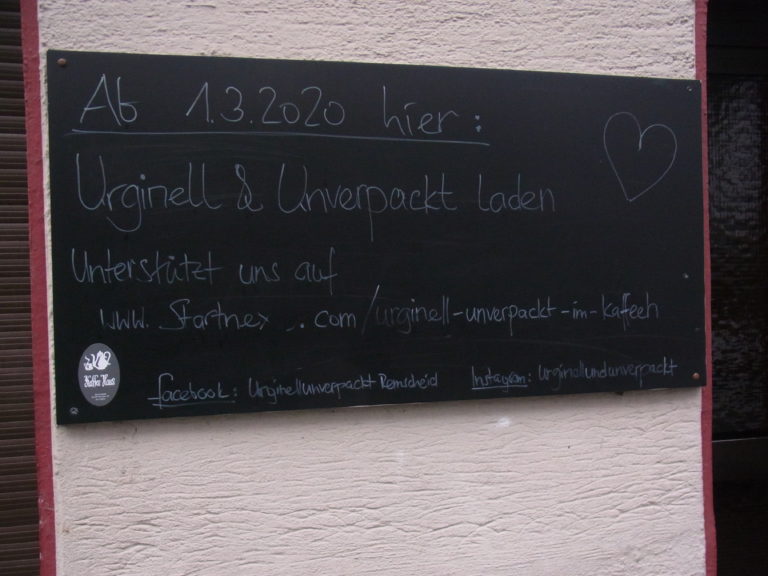 Ab 1.3.2020 hier:
Urginell & Unverpackt laden
Unterstützt uns auf
www. Startnex .. com/urginell-unverpackt-im-kaffeeh
Kaffee Haus
facebook: Urginellunverpackt Remscheid
Instagram: urginellundunverpackt